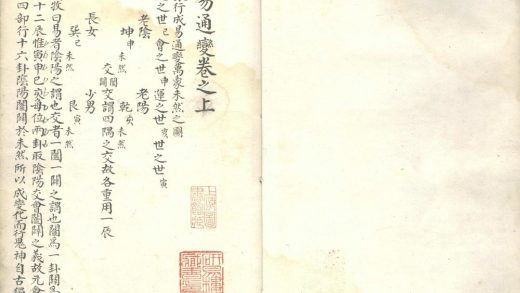 易通變卷之上
行成易通變萬象未然之圖
之世 已 會之世 申 運之世 亥 世之世 寅
老陰 老陽
坤 申 未然 乾 亥 未然
交 闔闢 交謂四隅之交故各重用一辰
長女 少男
巽 已 未然 艮 寅 未然
牧曰易者陰陽之謂也交者一闔一闢之謂也闔為一卦闢為
十二辰惟寅申巳亥每位兩卦取陰陽交會闔闢之義故元會
四部行十六卦陰陽闔闢於未然所以成變化而行鬼神自古